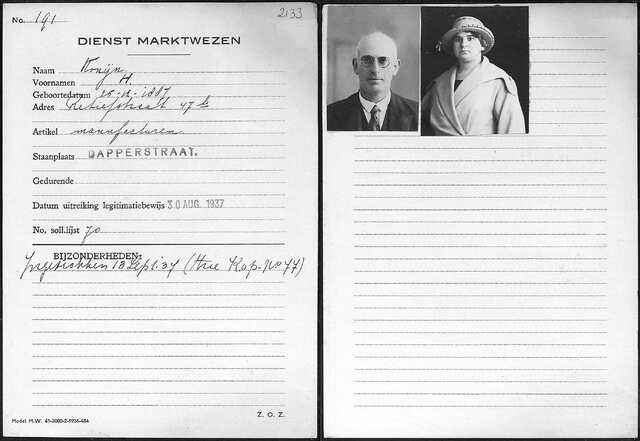 No. 191
2133
DIENST MARKTWEZEN
Naam Konijn
Voornamen H.
Geboortedatum 1887
Adres Retiefstraat 47
Artikel manufacturen
Staanplaats DAPPERSTRAAT.
Gedurende
Datum uitreiking legitimatiebewijs 30 AUG. 1937
No. soll.lijst 70
BIJZONDERHEDEN:
Ingetrokken 13 Sept. 37 (
Z. O. Z.
Model M.W. 41-2000-2-1936-484